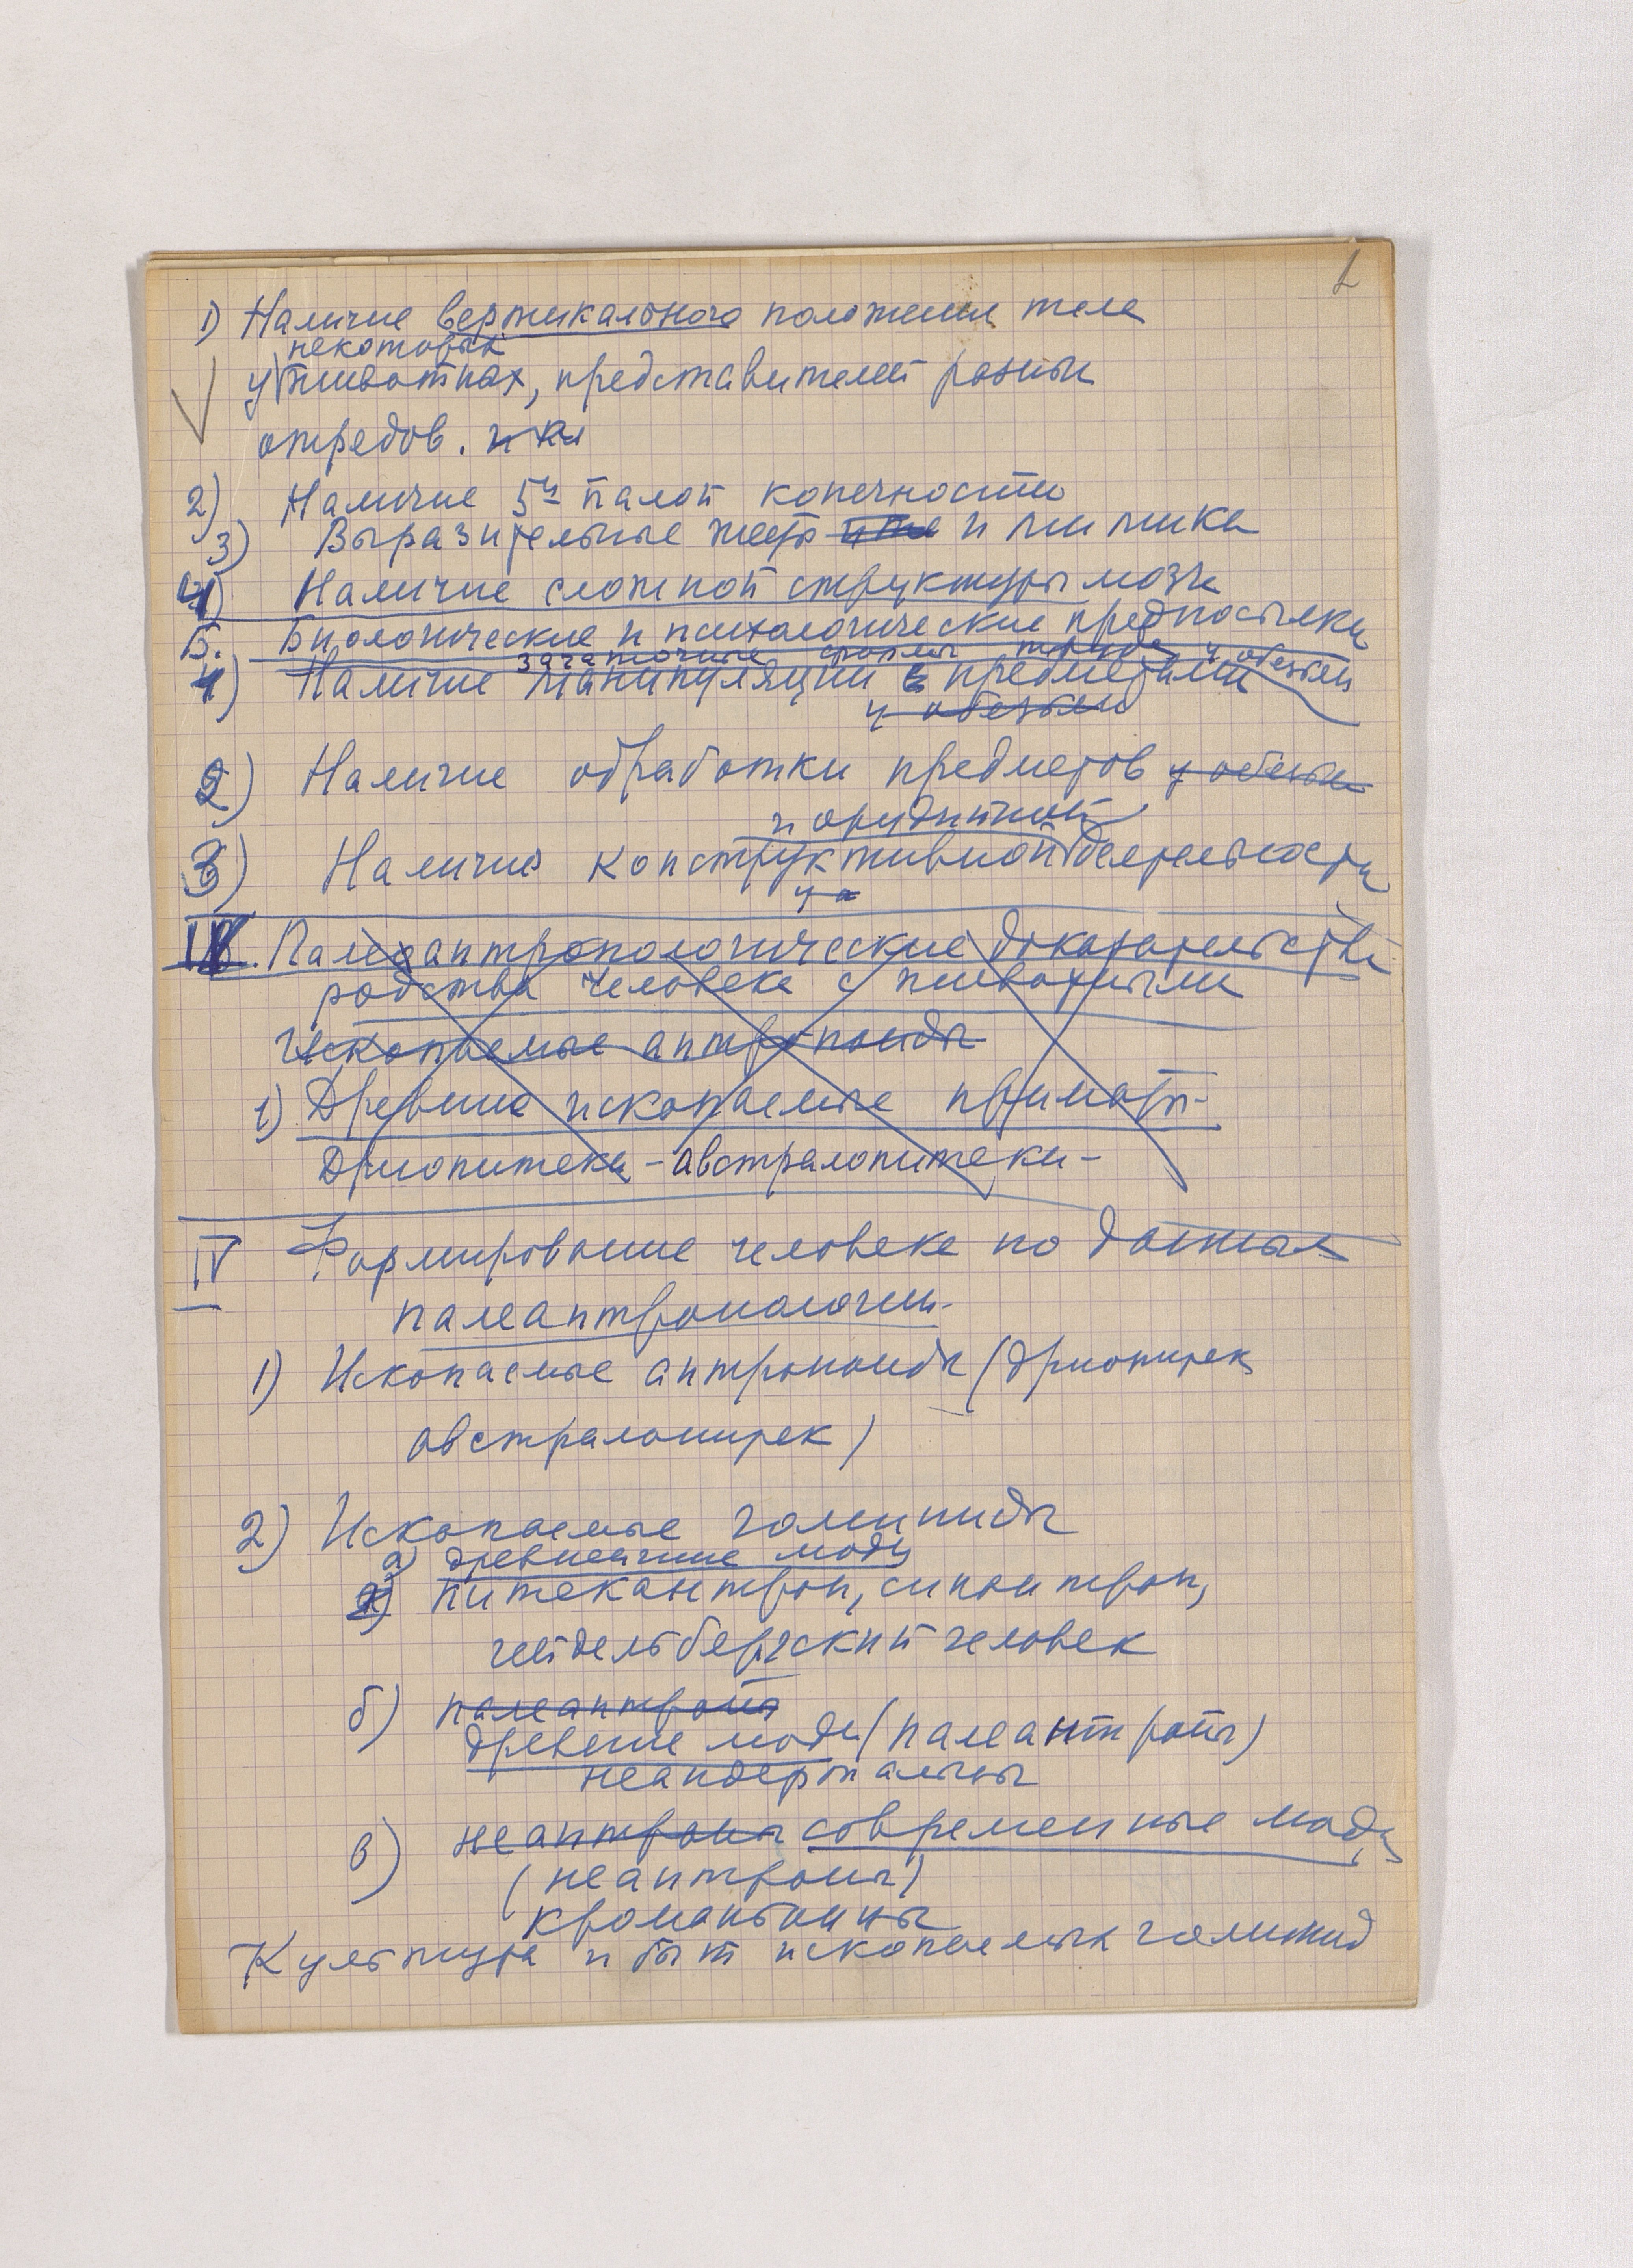 1
1) Наличие вертикального положения тела
некоторых
у животных, представителей разных
отрядов.
2) Наличие 5й палой конечности
3) Выразительные жесты и мимика
4) Наличие сложной структуры мозга
Б. Биологические и психологические предпосылки
зачаточные формы труда у обезьян
1) Наличие манипуляции предметами
у обезьян
2) Наличие обработки предметов у обезьян
и орудийной
3) Наличие конструктивной деятельности
Палеоантропологические доказательства
родства человека с животными
Ископаемые антропоиды
1) Древние ископаемые приматы-
Дриопитеки - австралопитеки -
IV Формирование человека по данным
палеантропологии.
1) Ископаемые антропоиды (дриопитек
австралопитек)
2) Ископаемые гоминиды
а) древнейшие люди
питекантроп, синантроп,
гейдельбергский человек
б) палеантропы
древние люди (палеантропы)
неандертальцы
в) неантропы современные люди
(неантропы)
кроманьонцы
Культура и быт ископаемых гоминид